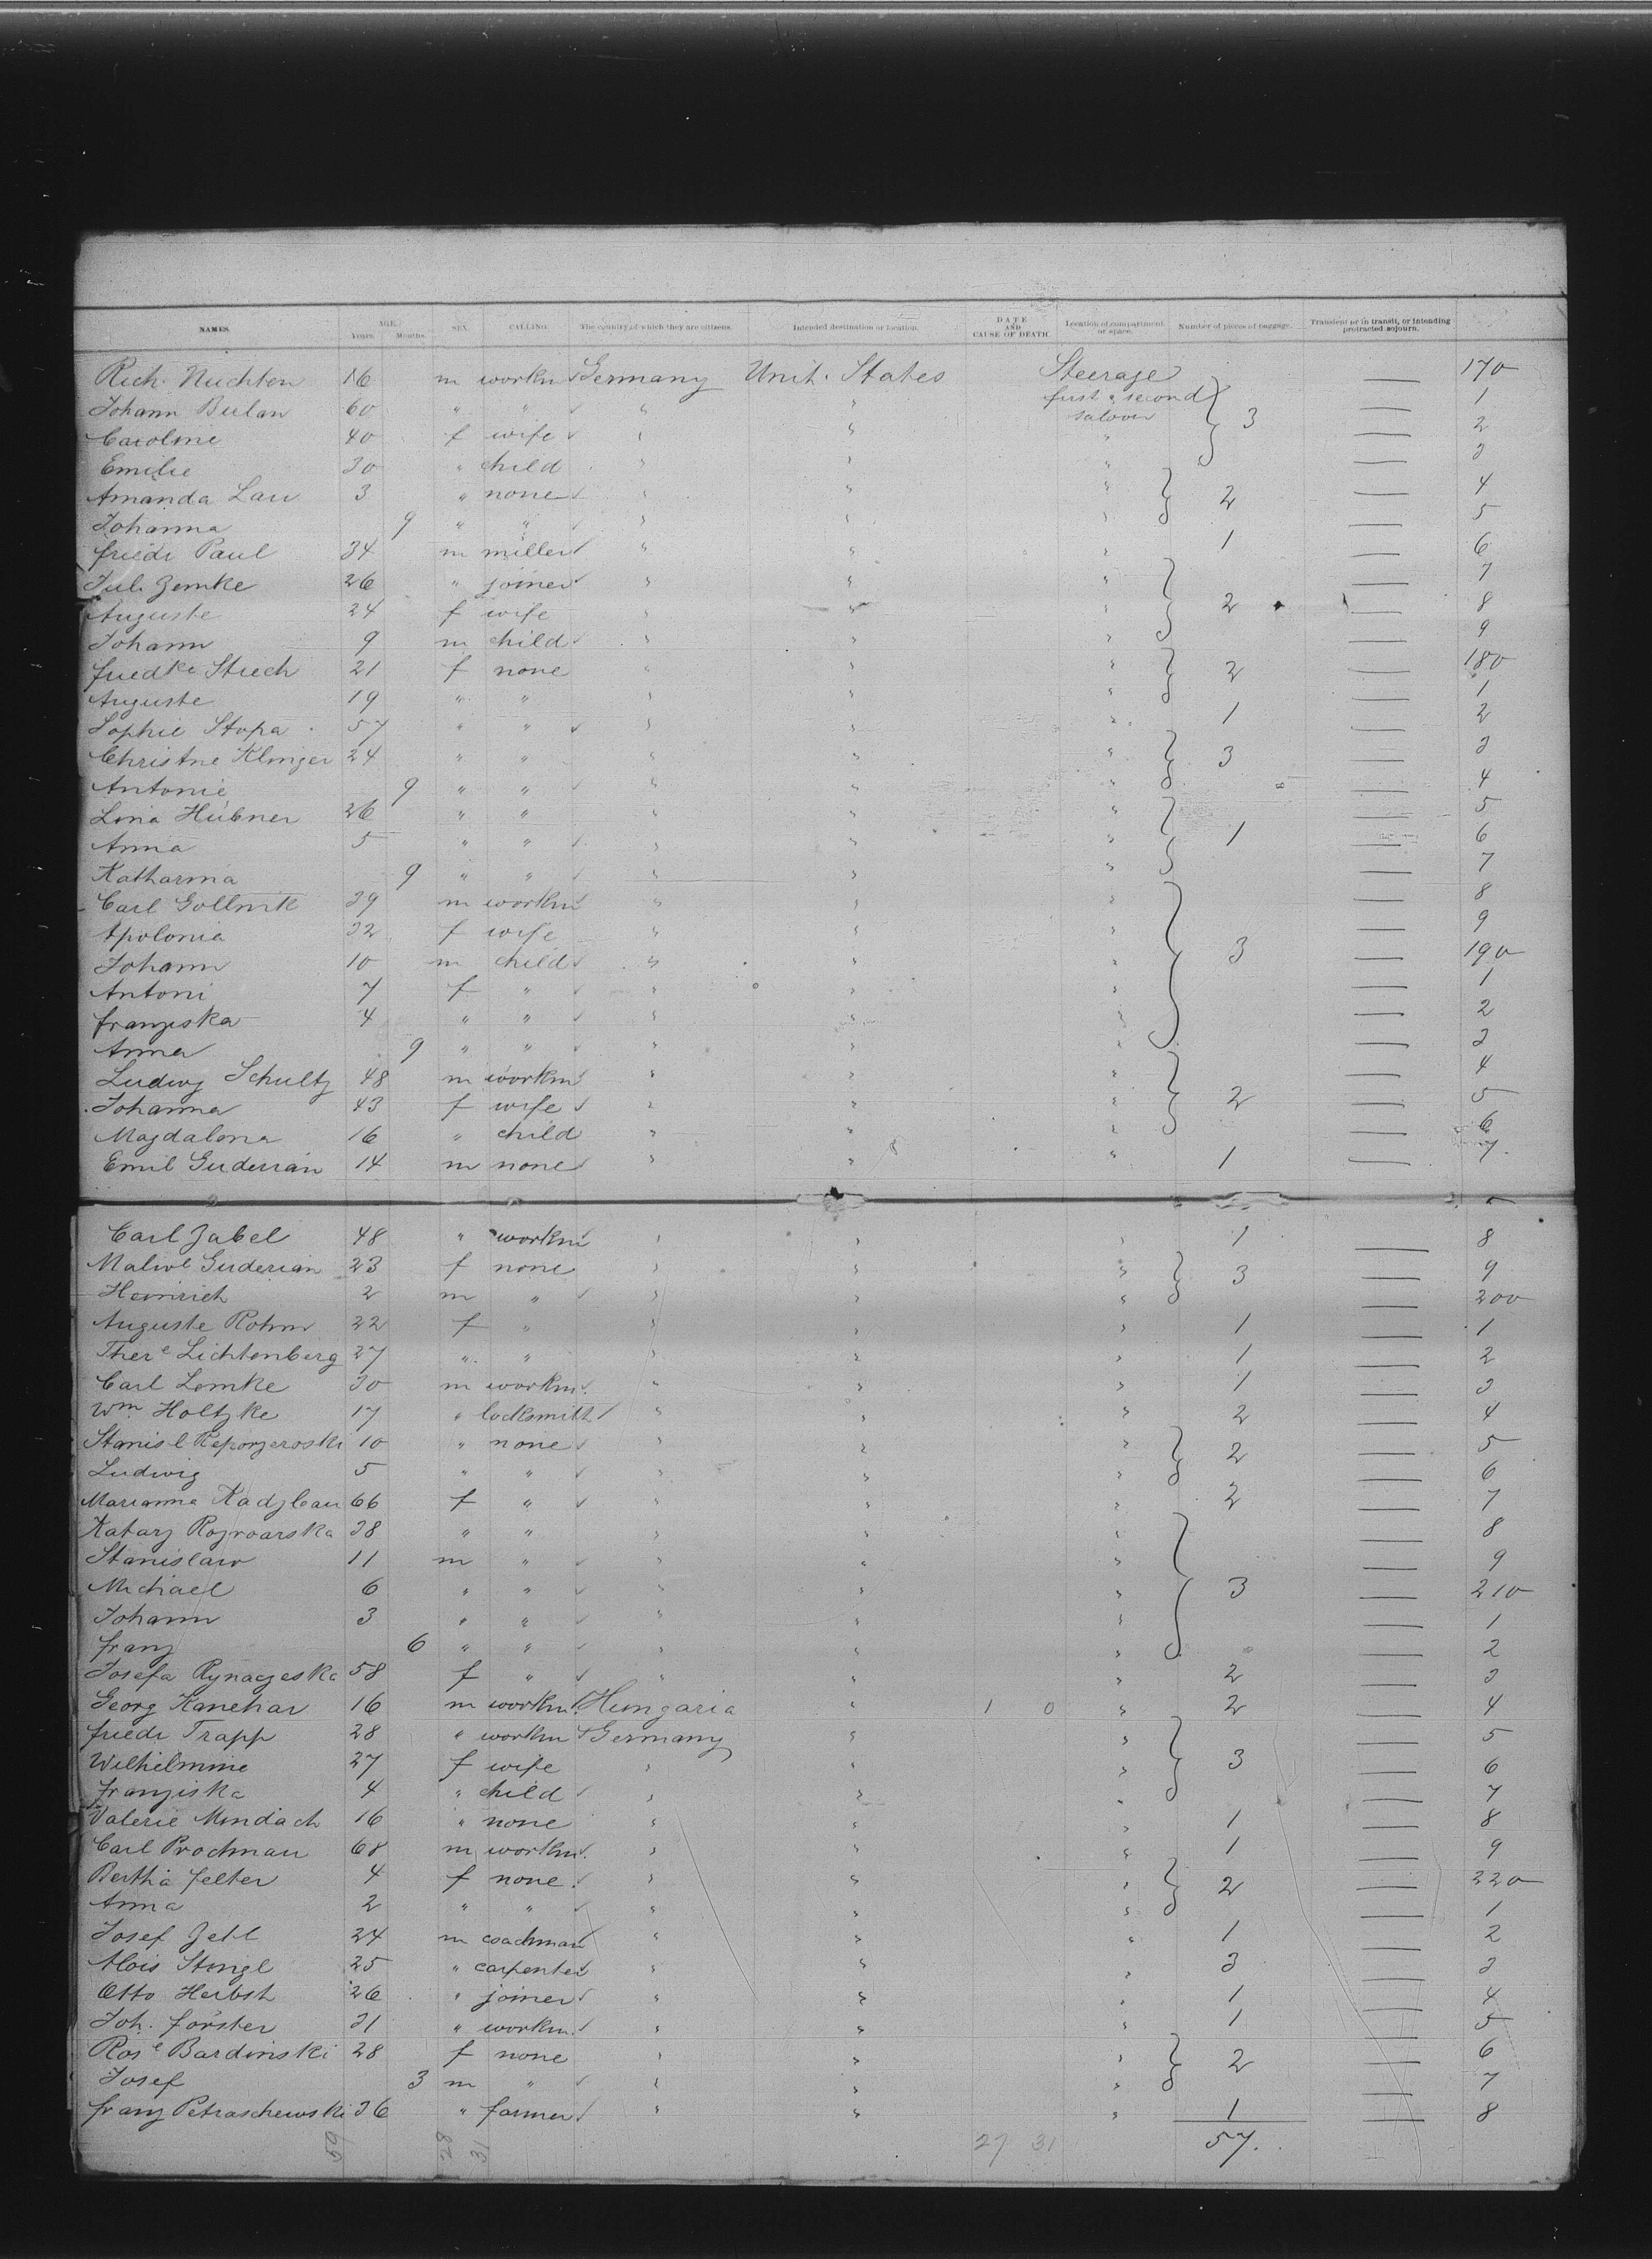 NAMES. AGE. Years. Months. SEX. CALLING. The country of which they are citizens. Intended destination or location. DATE AND CAUSE OF DEATH. Location of compartment or space. Number of pieces of baggage. Transient or in transit, or intending protracted sojourn.
Rich. Nuchten 16 m workm Germany Unit. States Steerage — 170
Johann Bulan 60 " " " " first & second saloon 3 — 1
Caroline 40 f wife " " " — 2
Emilie 30 " child " " " — 3
Amanda Lau 3 " none " " " 2 — 4
Johanna 9 " " " " " — 5
friedr Paul 34 m miller " " " 1 — 6
Jul. Zemke 26 " joiner " " " 2 — 7
Auguste 24 f wife " " " — 8
Johann 9 m child " " " — 9
friedke Stech 21 f none " " " 2 — 180
Auguste 19 " " " " " — 1
Sophie Stopa 57 " " " " " 1 — 2
Christne Klinger 24 " " " " " 3 — 3
Antonie 9 " " " " " — 4
Lina Hübner 26 " " " " " 1 — 5
Anna 5 " " " " " — 6
Katharina 9 " " " " " — 7
Carl Gollnik 39 m workm " " " 3 — 8
Apolonia 32 f wife " " " — 9
Johann 10 m child " " " — 190
Antoni 7 f " " " " — 1
franziska 4 " " " " " — 2
Anna 9 " " " " " — 3
Ludwg Schultz 48 m workm " " " 2 — 4
Johanna 43 f wife " " " — 5
Magdalena 16 " child " " " — 6
Emil Guderian 14 m none " " " 1 — 7
Carl Zabel 48 " workm " " " 1 — 8
Malwe Guderian 23 f none " " " 3 — 9
Heinrich 2 m " " " " — 200
Auguste Rohm 22 f " " " " 1 — 1
There Lichtenberg 27 " " " " " 1 — 2
Carl Lemke 30 m workm. " " " 1 — 3
Wm Holtzke 17 " locksmith " " " 2 — 4
Stanisl 10 " none " " " 2 — 5
Ludwig 5 " " " " " — 6
Marianna Kadzlau 66 f " " " " 2 — 7
Katarz 38 " " " " " 3 — 8
Stanislaw 11 m " " " " — 9
Michael 6 " " " " " — 210
Johann 3 " " " " " — 1
franz 6 " " " " " — 2
Josefa Rynaczeska 58 f " " " " 2 — 3
Georg Kanehar 16 m workm. Hungaria " 1 0 " 2 — 4
friedr Trapp 28 " workm Germany " " 3 — 5
Wilhelmine 27 f wife " " " — 6
franziska 4 " child " " " — 7
Valerie Mindach 16 " none " " " 1 — 8
Carl Prochnau 68 m workm. " " " 1 — 9
Bertha felter 4 f none. " " " 2 — 220
Anna 2 " " " " " — 1
Josef Zehl 24 m coachman " " " 1 — 2
Alois Stingl 25 " carpenter " " " 3 — 3
Otto Herbst 26 " joiner " " " 1 — 4
Joh. förster 31 " workm. " " " 1 — 5
Rose Bardinski 28 f none " " " 2 — 6
Josef 3 m " " " " — 7
franz Petraschewski 36 " farmer " " " 1 — 8
59 28 31 27 31 57.